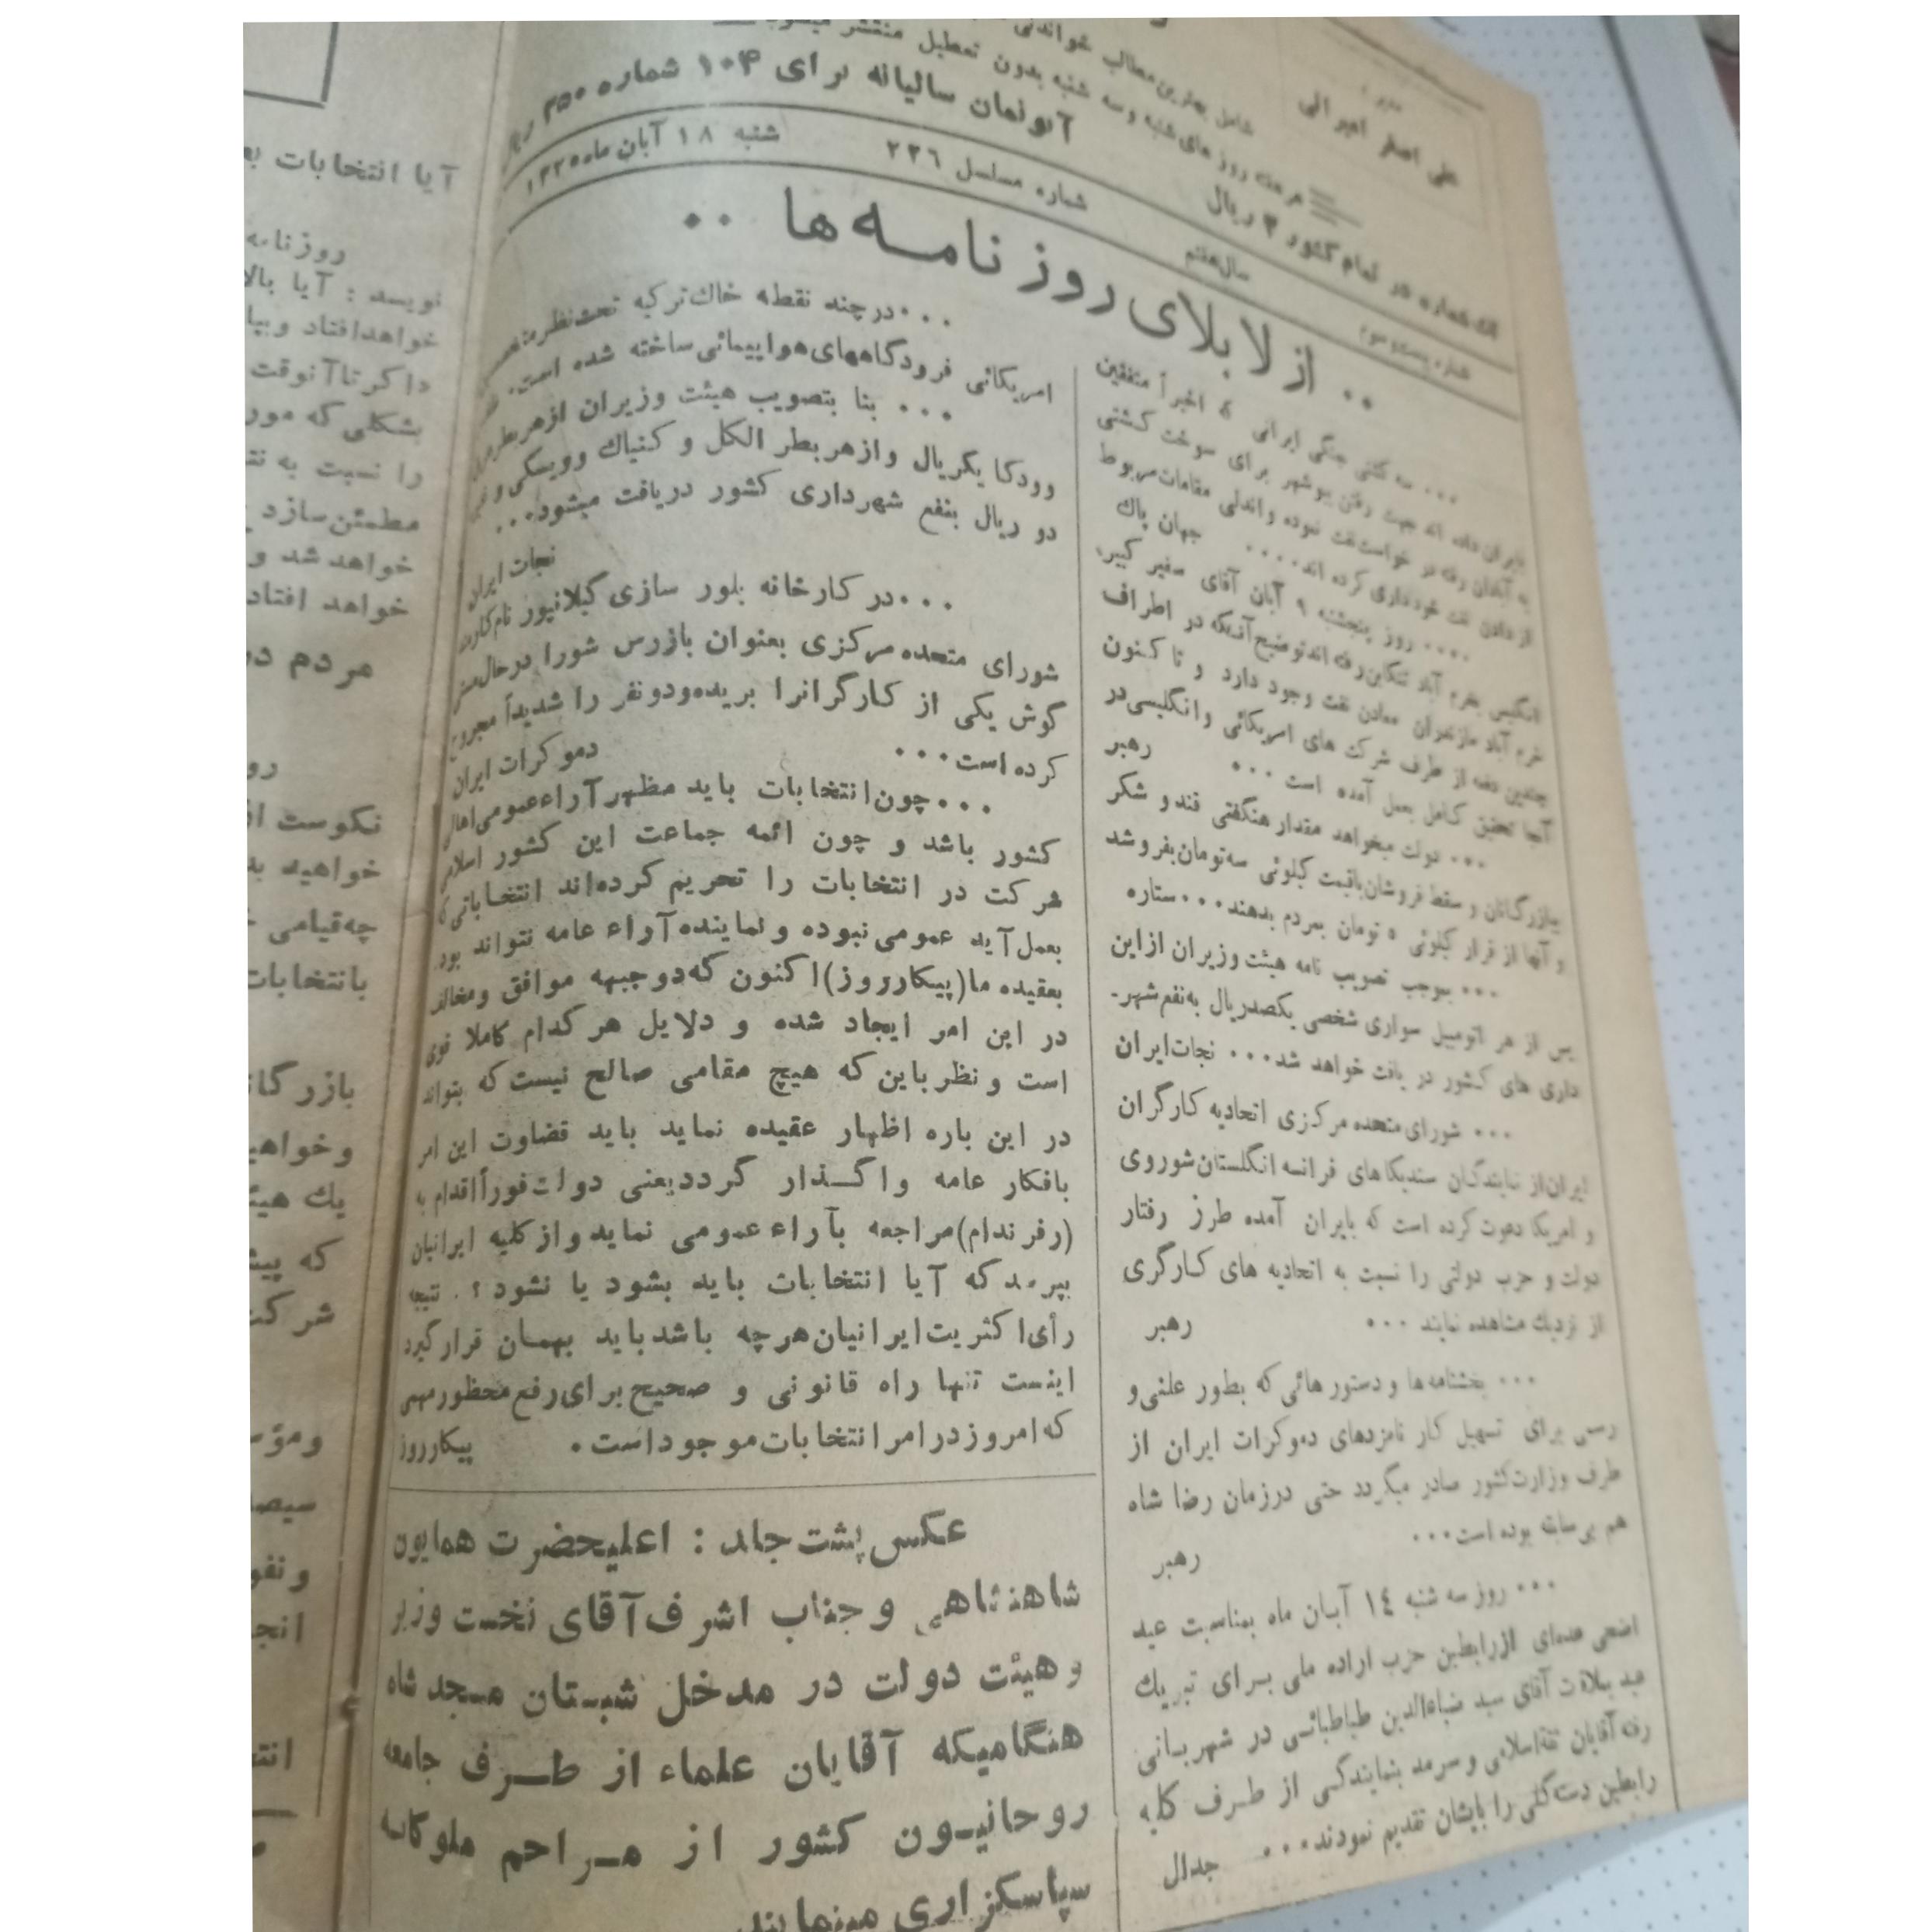 علی اصغر امیرانی
شامل بهترین مطالب خواندنی
هر هفته روز های شنبه و سه شنبه بدون تعطیل منتشر میشود
آبونمان سالیانه برای ۱۰۴ شماره ۲۵۰ ریال
تک شماره در تمام کشور ۳ ریال
شماره بیست و سوم
سال هفتم
شماره مسلسل ۲۳٦
شنبه ۱۸ آبان ماه ۱۳۲۵
۰۰ از لابلای روزنامه ها ۰۰
۰۰۰ سه کشتی جنگی ایرانی که اخیراً متفقین
بایران داده اند جهت رفتن ببوشهر برای سوخت کشتی
به آبادان رفته درخواست نفت نموده و اندلی مقامات مربوط
از دادن نفت خودداری کرده اند۰۰۰۰ جهان پاك
۰۰۰۰ روز پنجشنبه ۹ آبان آقای سفیر کبیر
انگلیس بخرم آباد تنکابن رفته اند توضیح آنکه در اطراف
خرم آباد مازندران معادن نفت وجود دارد و تا کنون
چندین دفعه از طرف شرکت های امریکائی و انگلیسی در
آنجا تحقیق کامل بعمل آمده است ۰۰۰ رهبر
۰۰۰ دولت میخواهد مقدار هنگفتی قند و شکر
ببازرگانان و سقط فروشان باقیمت کیلوئی سه تومان بفروشد
و آنها از قرار کیلوئی ۵ تومان بمردم بدهند۰۰۰ستاره
۰۰۰ بموجب تصویب نامه هیئت وزیران ازاین
پس از هر اتومبیل سواری شخصی یکصدریال به نفع شهر-
داری های کشور دریافت خواهد شد۰۰۰ نجات ایران
۰۰۰ شورای متحده مرکزی اتحادیه کارگران
ایران از نمایندگان سندیکاهای فرانسه انگلستان شوروی
و امریکا دعوت کرده است که بایران آمده طرز رفتار
دولت و حزب دولتی را نسبت به اتحادیه های کارگری
از نزدیك مشاهده نمایند ۰۰۰ رهبر
۰۰۰ بخشنامه ها و دستور هائی که بطور علنی و
رسمی برای تسهیل کار نامزدهای دموکرات ایران از
طرف وزارت کشور صادر میگردد حتی درزمان رضا شاه
هم بی سابقه بوده است۰۰۰
رهبر
۰۰۰ روز سه شنبه ١٤ آبان ماه بمناسبت عید
اضحی عده‌ای ازرابطین حزب اراده ملی برای تبریك
عید بملاقات آقای سید ضیاءالدین طباطبائی در شهربانی
رفته آقایان ثقةاسلامی و سرمد بنمایندگی از طرف کلیه
رابطین دسته گلی را بایشان تقدیم نمودند۰۰۰ جدال
۰۰۰درچند نقطه خاك ترکیه تحت نظر متخصصین
امریکائی فرودگاههای هواپیمائی ساخته شده است۰
۰۰۰ بنا بتصویب هیئت وزیران ازهر بطر
وودکا یکریال و ازهر بطر الکل و کنیاك و ویسکی و
دو ریال بنفع شهرداری کشور دریافت میشود۰۰۰
نجات ایران
۰۰۰در کارخانه بلور سازی گیلانپور نام
شورای متحده مرکزی بعنوان بازرس شورا درحال
گوش یکی از کارگرانرا بریده ودونفر را شدیداً مجروح
کرده است۰۰۰ دموکرات ایران
۰۰۰چون انتخابات باید مظهر آراء عمومی اهالی
کشور باشد و چون ائمه جماعت این کشور اسلامی
شرکت در انتخابات را تحریم کرده‌اند انتخاباتی که
بعمل آید عمومی نبوده و نماینده آراء عامه نتواند بود.
بعقیده ما(پیکارروز)اکنون که دوجبهه موافق ومخالف
در این امر ایجاد شده و دلایل هر کدام کاملا قوی
است و نظر باین که هیچ مقامی صالح نیست که بتواند
در این باره اظهار عقیده نماید باید قضاوت این امر
بافکار عامه واگذار گردد یعنی دولت فوراً اقدام به
(رفرندام)مراجعه بآراء عمومی نماید و از کلیه ایرانیان
بپرسد که آیا انتخابات باید بشود یا نشود ؟ . نتیجه
رأی اکثریت ایرانیان هرچه باشد باید بهمان قرار گیرد
اینست تنها راه قانونی و صحیح برای رفع محظورمهمی
که امروز در امر انتخابات موجود است۰ پیکارروز
عکس پشت جلد : اعلیحضرت همایون
شاهنشاهی و جناب اشرف آقای نخست وزیر
و هیئت دولت در مدخل شبستان مسجد شاه
هنگامیکه آقایان علماء از طرف جامعه
روحانیون کشور از مراحم ملوکانه
سپاسگزاری مینمایند
آیا انتخابات
روزنامه
نویسد : آیا
خواهد افتاد و
دا کر تا آنوقت
بشکلی که
را نسبت به
مطمئن سازد
خواهد شد و
خواهد افتاد
مردم
نکوست
خواهید
چه قیامی
بانتخابات
و
یك
که
شرکت